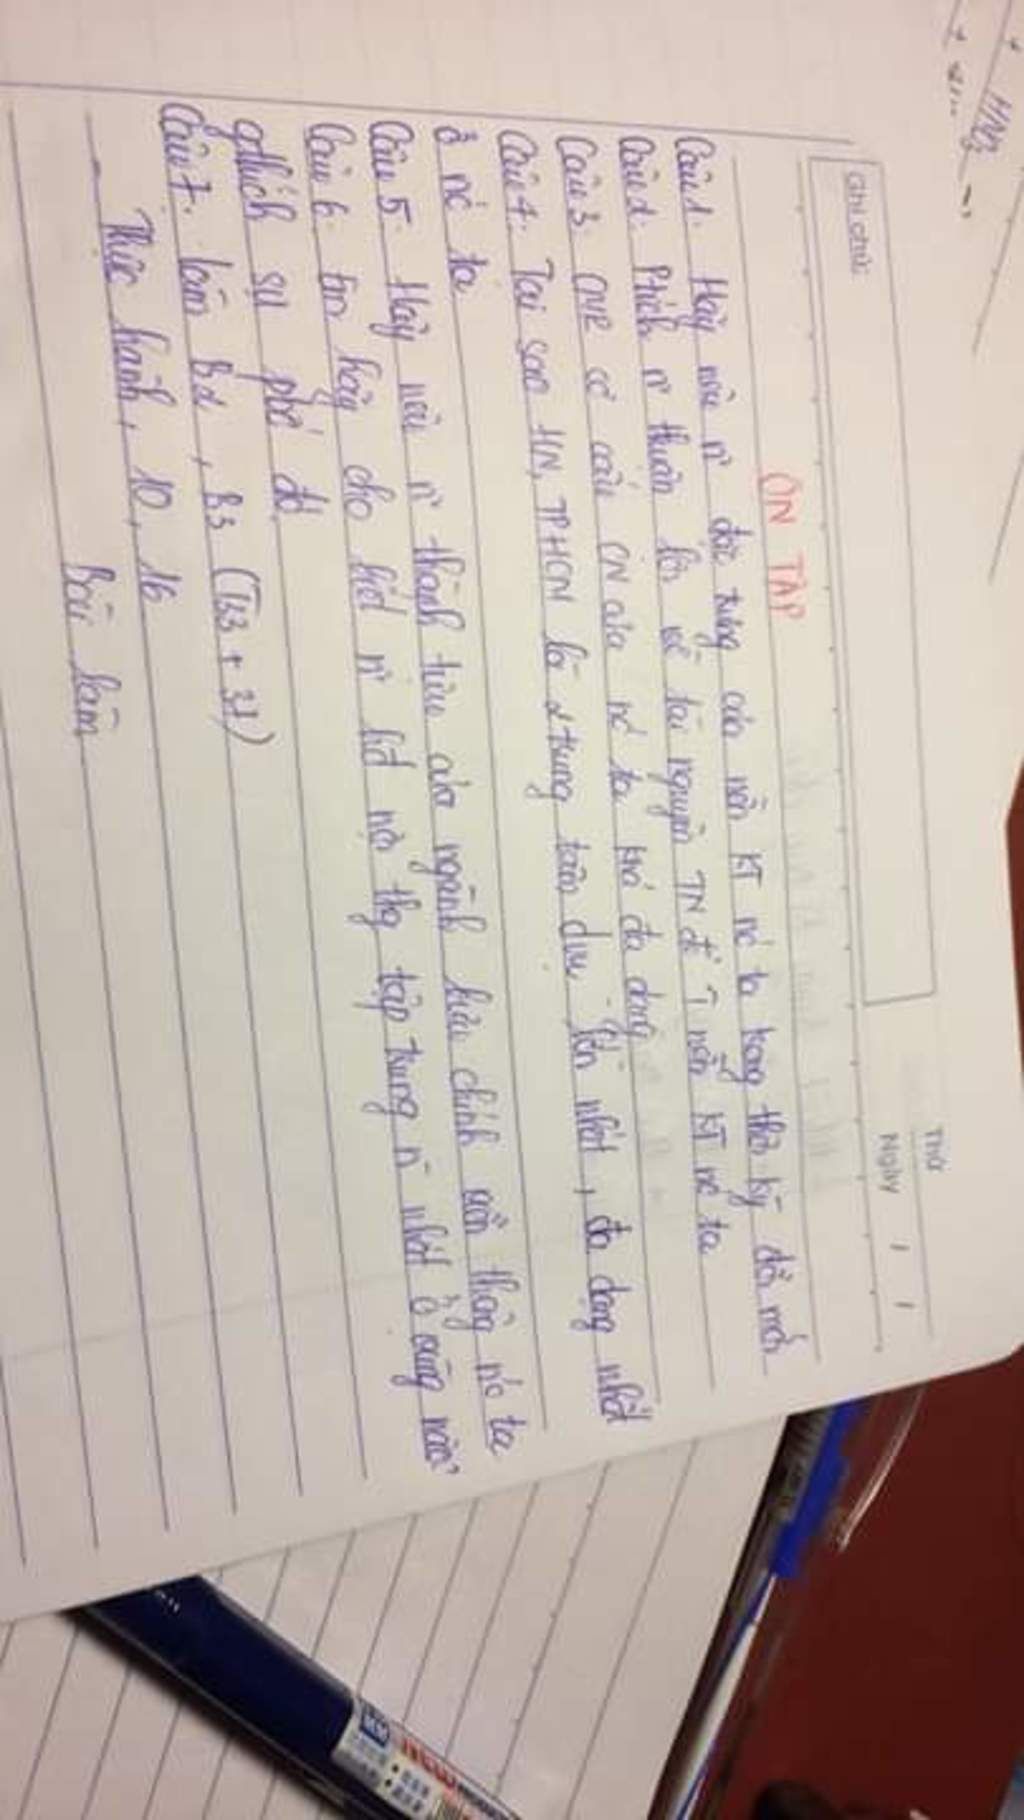 Ghi chú:
Thứ
Ngày / /
ÔN TẬP
Câu 1. Hãy nêu n~ đặc trưng của nền KT nc ta trong thời kỳ đổi mới
Câu 2. Ptích n~ thuận lợi về tài nguyên TN để nền KT nc ta
Câu 3. CMR cơ cấu CN của nc ta khá đa dạng
Câu 4. Tại sao HN, TPHCM là 2 trung tâm dvụ lớn nhất, đa dạng nhất
ở nc ta
Câu 5. Hãy nêu n~ thành tựu của ngành bưu chính viễn thông nc ta
Câu 6. Em hãy cho biết n~ nào tập trung n~ nhất ở vùng nào?
gthích sự pbố đó.
Câu 7. Làm B2, B3 (T33 + 37)
Thực hành, 10, 16
Bài làm